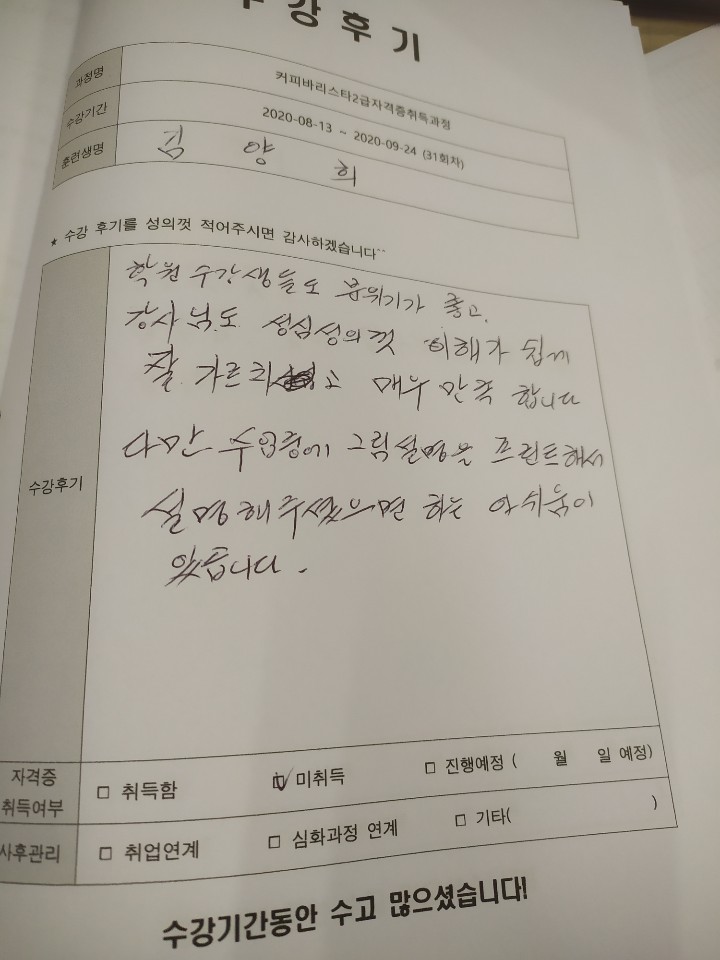 수강후기
과정명 커피바리스타2급자격증취득과정
수강기간 2020-08-13 ~ 2020-09-24 (31회차)
훈련생명 김 양 희
★ 수강 후기를 성의껏 적어주시면 감사하겠습니다^^
수강후기
학원 수강생들도 분위기가 좋고.
강사님도 성심성의껏 이해가 쉽게
잘 가르치고 매우 만족 합니다
다만 수업중에 그림설명을 프린트해서
설명해주셨으면 하는 아쉬움이
있습니다.
자격증 취득여부 □ 취득함 ☑ 미취득 □ 진행예정 ( 월 일 예정)
사후관리 □ 취업연계 □ 심화과정 연계 □ 기타( )
수강기간동안 수고 많으셨습니다!